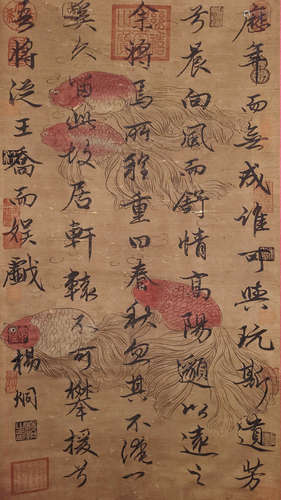 歷年而無成誰可與玩斯遺芳
兮晨向風而舒情高陽邈以遠之
余將焉所程重曰春秋忽其不淹
奚久留此故居軒轅不可攀援兮
吾將從王僑而娛戲
楊炯